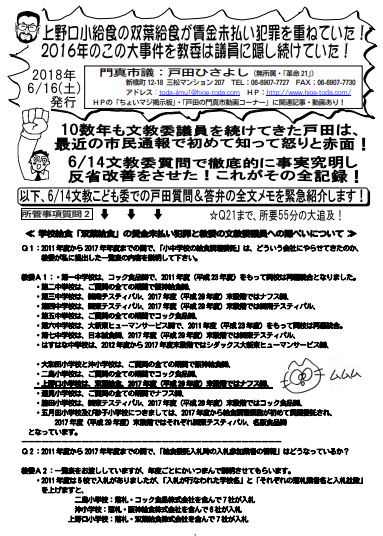 上野口小給食の双葉給食が賃金未払い犯罪を重ねていた!
2016年のこの大事件を教委は議員に隠し続けていた!
2018年
6/16(土)
発行
門真市議:戸田ひさよし(無所属・「革命21」)
新橋町12-18 三松マンション207 TEL 06-6907-7727 FAX 06-6907-7730
アドレス:toda-jimu1@hige-toda.com HP:http://www.hige-toda.com/
HPの「ちょいマジ掲示板」・「戸田の門真市動画コーナー」に関連記事・動画あり!
10数年も文教委議員を続けてきた戸田は、
最近の市民通報で初めて知って怒りと赤面!
6/14文教委質問で徹底的に事実究明し
反省改善をさせた!これがその全記録!
以下、6/14文教こども委での戸田質問&答弁の全文メモを緊急紹介します!
所管事項質問2 ↓ ↓ ↓ ☆Q21まで、所要55分の大追及!
≪ 学校給食「双葉給食」の賃金未払い犯罪と教委の文教委議員への隠ぺいについて ≫
Q1:2011年度から2017年度までの間で、「小中学校の給食調理委託」は、どういう会社にやらせてきたのか、
教委が私に提出した一覧表の内容を説明して下さい。
教委A1:・第一中学校は、コック食品㈱で、2011年度(平成23年度)をもって同校は再編統合となりました。
・第二中学校は、ご質問の全ての期間で阪神給食㈱、
・第三中学校は、
2017年度(平成29年度)末段階ではナフス㈱、
・第四中学校は、ご質問の全ての期間で
・第五中学校は、ご質問の全ての期間でコック食品㈱、
・第六中学校は、大新東ヒューマンサービス㈱で、2011年度(平成23年度)をもって同校は再編統合。
・第七中学校は、日本
2017年度(平成29年度)末段階では
・はすはな中学校は、2012年度から2017年度末段階ではシダックス大新東ヒューマンサービス㈱、
・大和田小学校と沖小学校は、ご質問の全ての期間で阪神給食㈱、
・二島小学校は、ご質問の全ての期間でコック食品㈱、
・上野口小学校は、双葉給食、2017年度(平成29年度)末段階ではナフス㈱、
・速見小学校は、ご質問の全ての期間でナフス㈱、
・脇田小学校は、
2017年度(平成29年度)末段階ではコック食品㈱、
・五月田小学校及び砂子小学校につきましては、2017年度から給食調理業務が初めて民間委託され、
2017年度(平成29年度)末段階ではそれぞれ
名阪食品㈱
となっています。
ムムム
Q2:2011年度から2017年度の間で、「給食委託入札時の入札参加業者の情報」はどうなっているか?
教委A2:一覧表をお渡ししていますが、年度ごとにかいつまんで説明させてもらいます。
・2011年度は5校で入札がありましたが、「入札が行なわれた学校名」と「それぞれの落札業者名と入札社数」
を上げますと、
二島小学校:落札・コック食品株式会社を含んで7社が入札
沖小学校:落札・阪神給食株式会社を含んで6社が入札
上野口小学校:落札・双葉給食株式会社を含んで7社が入札